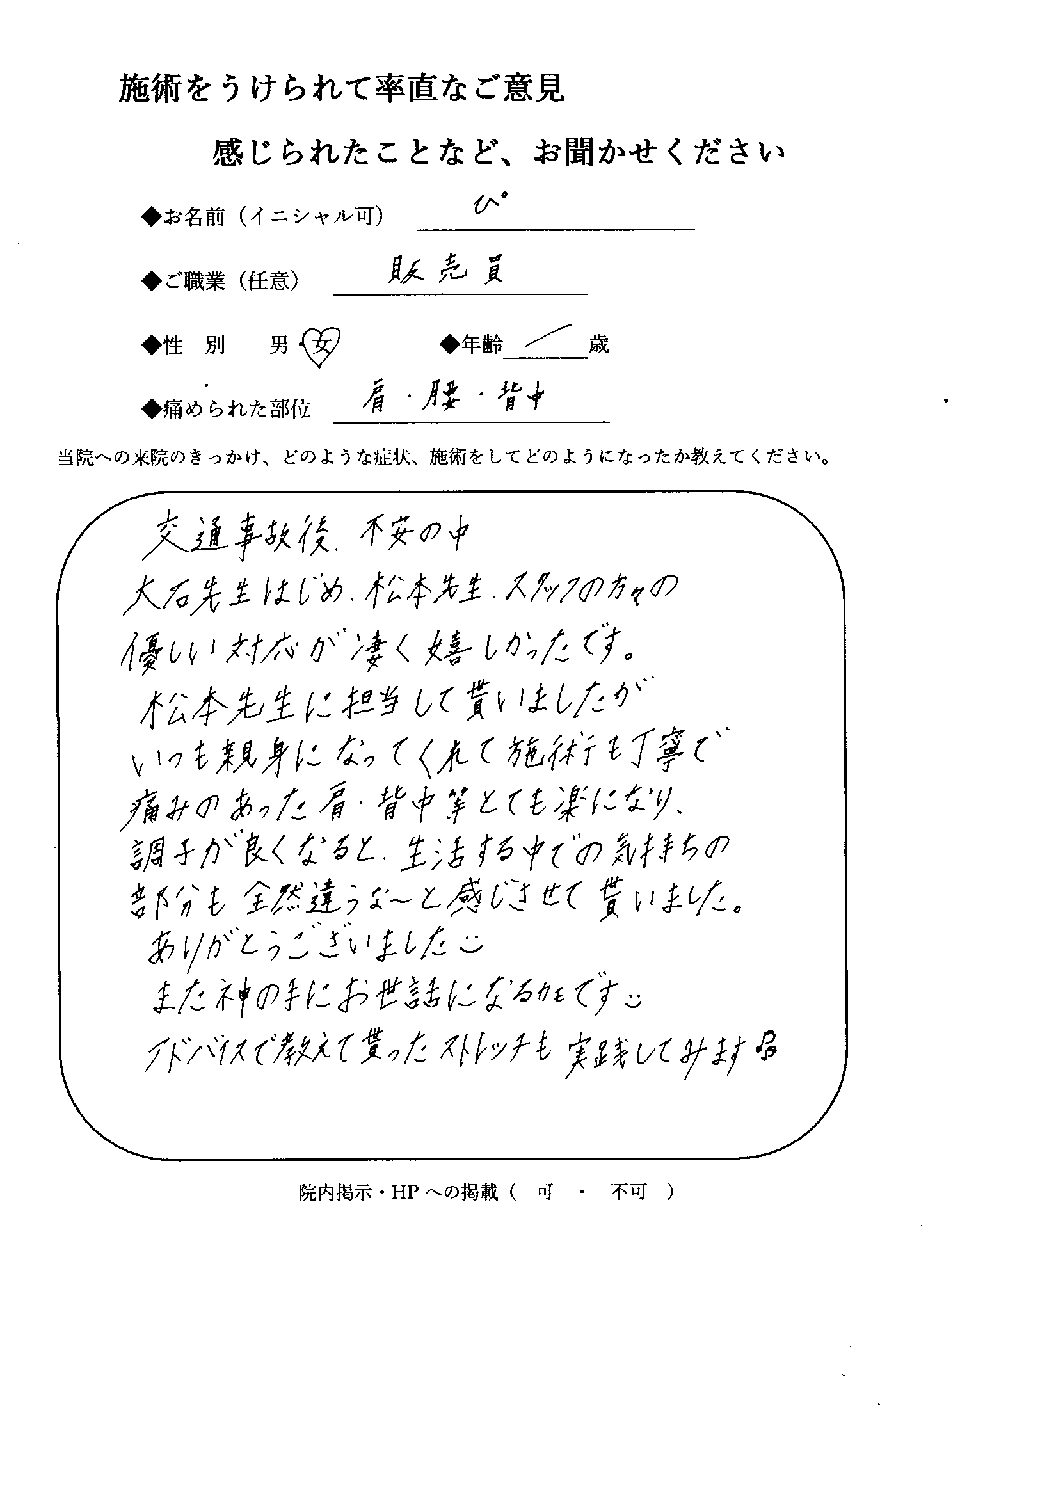 施術をうけられて率直なご意見
感じられたことなど、お聞かせください
◆お名前（イニシャル可） ぴ
◆ご職業（任意） 販売員
◆性 別 男・女 ◆年齢 ／ 歳
◆痛められた部位 肩・腰・背中
当院への来院のきっかけ、どのような症状、施術をしてどのようになったか教えてください。
交通事故後、不安の中
大石先生はじめ、松本先生、スタッフの方々の
優しい対応が凄く嬉しかったです。
松本先生に担当して貰いましたが
いつも親身になってくれて施術も丁寧で
痛みのあった肩・背中等とても楽になり、
調子が良くなると、生活する中での気持ちの
部分も全然違うな〜と感じさせて貰いました。
ありがとうございました
また神の手にお世話になるかもです
アドバイスで教えて貰ったストレッチも実践してみます
院内掲示・HPへの掲載（ 可 ・ 不可 ）